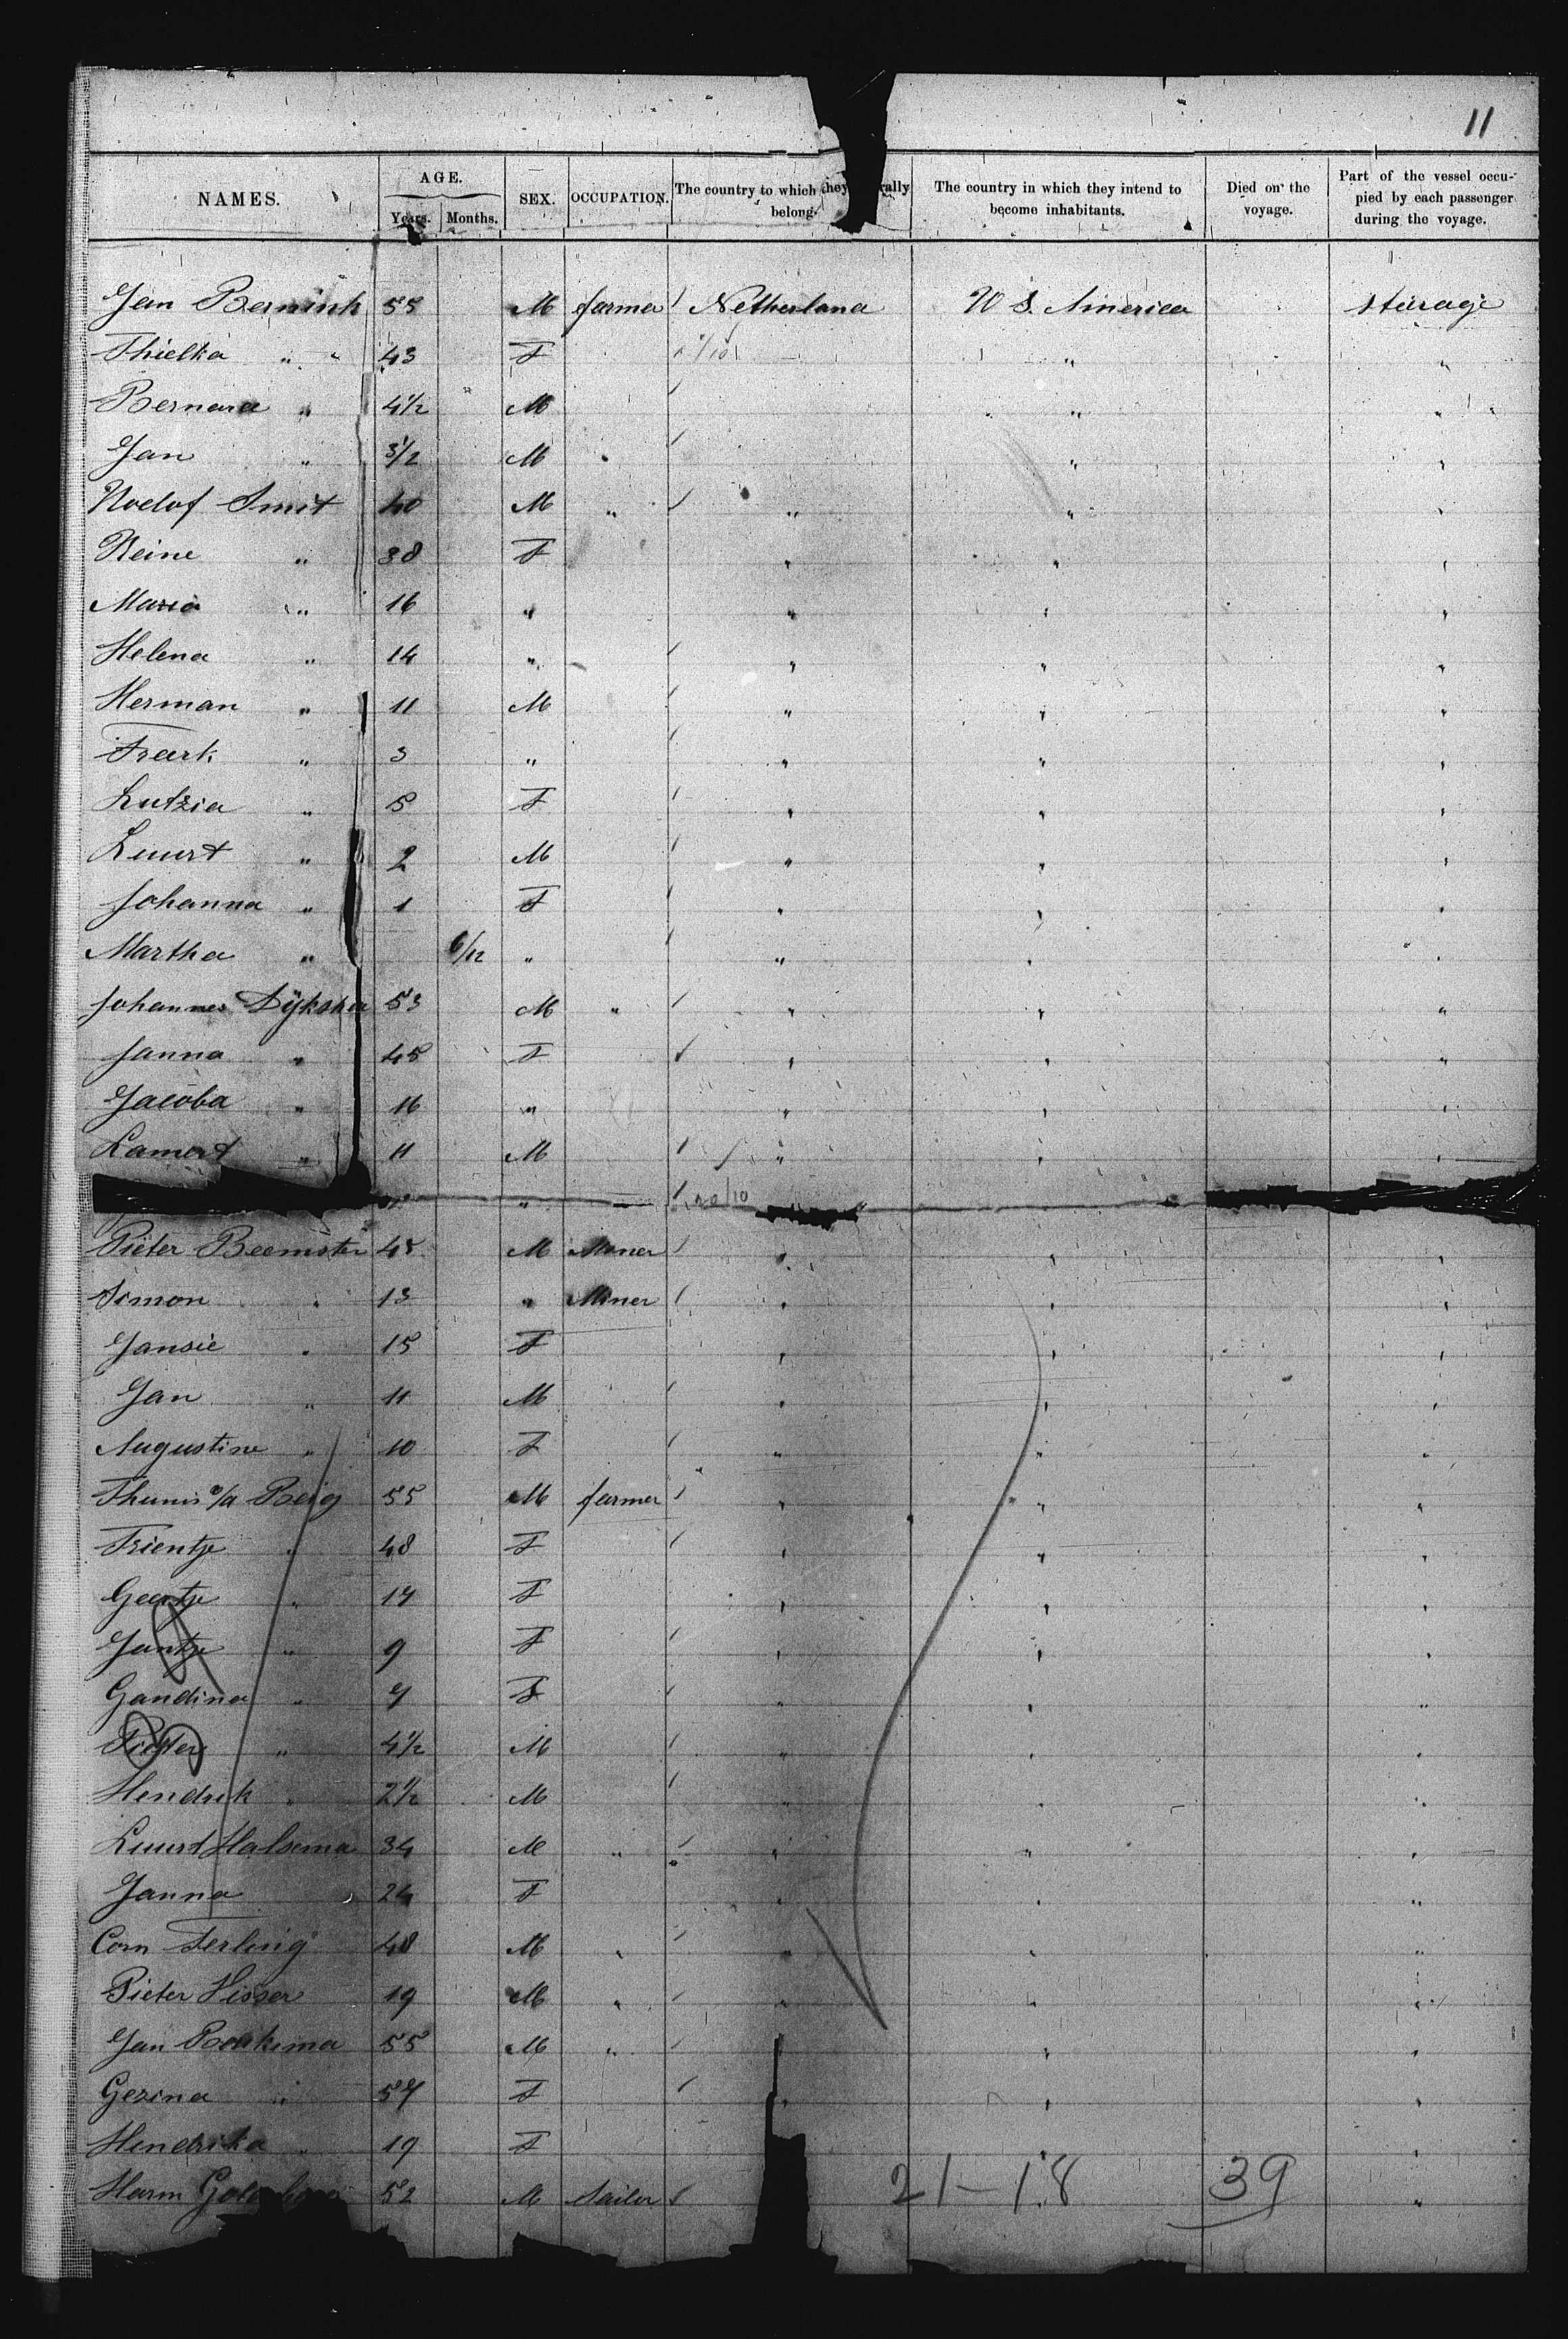 11
NAMES. AGE. Years. Months. SEX. OCCUPATION. The country to which they rally belong. The country in which they intend to become inhabitants. Died on the voyage. Part of the vessel occupied by each passenger during the voyage.
Jan Bernink 55 M farmer Netherland U S. America stearage
Thielka " 43 F "
Bernard " 4 1/2 M " "
Jan " 3 1/2 M " "
Roelof Smit 40 M " " " "
Reine " 38 F " " "
Maria " 16 " " " "
Helena " 14 " " " "
Herman " 11 M " " "
Frerk " 3 " " " "
Lutzia " 5 F " " "
Luurt " 2 M " " "
Johanna " 1 F " " "
Martha " 6/12 " " " "
Johannes Dÿkstra 53 M " " " "
Janna " 45 F " " "
Jacoba " 16 " " " "
Lamert " 11 M " " "
" 20/10 "
Pieter Beemster 45 M Miner " " "
Simon " 13 " Miner " " "
Jansie " 15 F " " "
Jan " 11 M " " "
Augustine " 10 F " " "
Thunis v/d Berg 55 M farmer " " "
Trientje " 48 F " " "
Geertje " 17 F " " "
Jantje " 9 F " " "
Gandina " 7 F " " "
Pieter " 4 1/2 M " " "
Hendrik " 2 1/2 M " " "
Luurt Halsema 34 M " " " "
Janna " 24 F " " "
Corn Terling 48 M " " " "
Pieter Visser 19 M " " " "
Jan Beukema 55 M " " "
Gezina " 57 F " " "
Hendrika " 19 F " "
Harm 52 M Sailor "
21-18 39